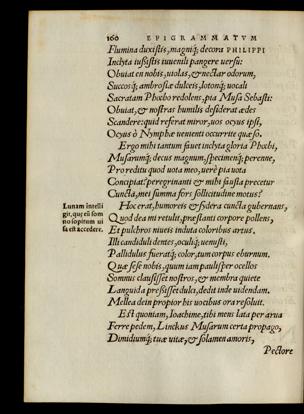 160 EPIGRAMMATVM
Flumina duxistis, magniq; decora PHILIPPI
Inclyta iussistis iuuenili pangere uersu:
Obuiat en nobis, uiolas, & nectar odorum,
Succosq́; ambrosiæ dulceis, lotonq́; uocali
Sacratam Phœbo redolens, pia Musa Sebasti:
Obuiat, & nostras humilis desyderat ædes
Scandere: quid referat miror, uos ocyus ipsi,
Ocyus ô Nymphæ uenienti occurrite quæso.
Ergo mihi tantum fauet inclyta gloria Phœbi,
Musarumq́; decus magnum, specimenq́; perenne,
Pro reditu quod uota meo, uerè pia uota
Concipiat? peregrinanti & mihi fausta precetur
Cuncta, mei summa fors sollicitudine motus?
Hoc erat, humoreis & sydera cuncta gubernans,
Quod dea mi retulit, præstanti corpore pollens,
Et pulchros niueis induta coloribus artus.
Illi candiduli dentes, oculiq́; uenusti,
Pallidulus fueratq́; color, tum corpus eburnum.
Quæ sese nobis, quum iam paulisper ocellos
Somnus clausisset nostros, & membra quiete
Languida pressisset dulci, dedit inde uidendam.
Mellea dein propior his uocibus ora resoluit.
Est quoniam, Ioachime, tibi mens lata per arua
Ferre pedem, Linckus Musarum certa propago,
Dimidiumq́; tuæ uitæ, & solamen amoris,
Pectore
Lunam intelli
git, quæ eũ som
no sopitum ui
sa est accedere.